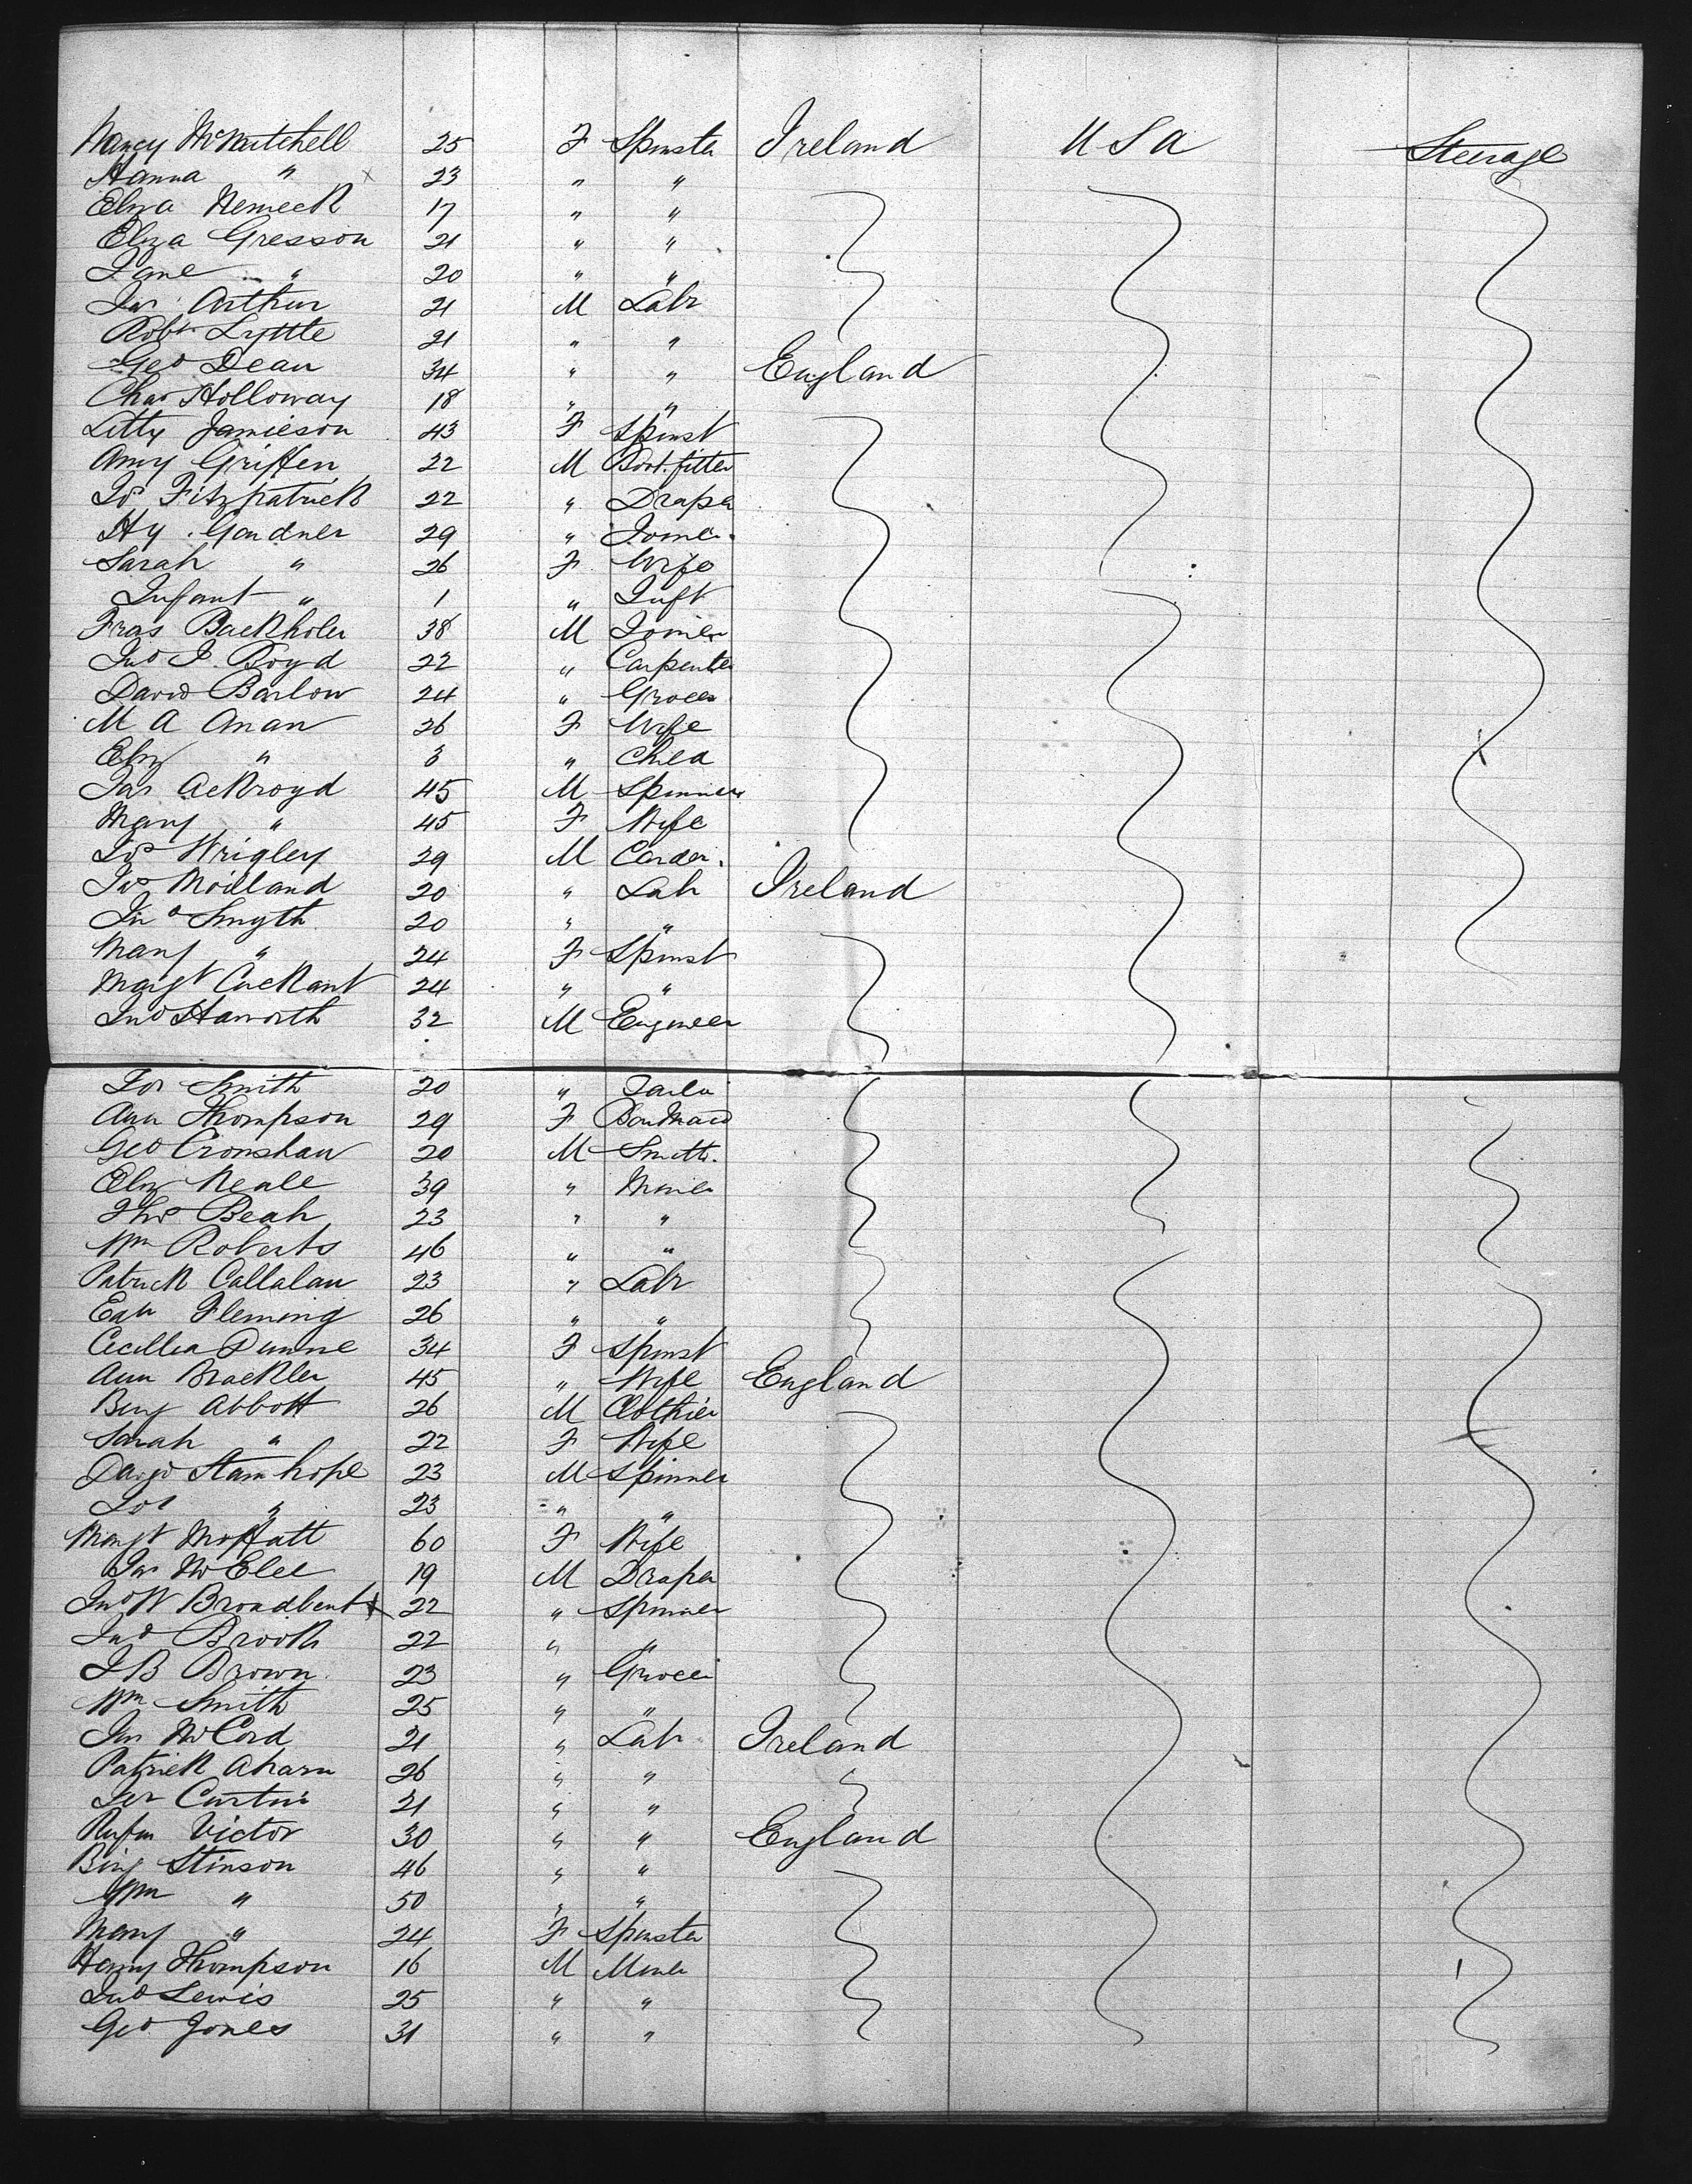 Nancy McMitchell 25 F Spinster Ireland USA Steerage
Hanna " 23 " "
Eliza 17 " "
Eliza Gresson 21 " "
Jane " 20 " "
Jas Arthur 21 M Labr
Robt Lyttle 21 " "
Geo Dean 34 " " England
Chas Holloway 18 " "
Letty Jamieson 43 F Spinst
Amy Griffen 22 M Boot.fitter
Jos Fitzpatrick 22 " Draper
Hy. Gardner 29 " Joiner
Sarah " 26 F Wife
Infant " 1 " Inft
Fras Backholer 38 M Joiner
Jno J. Boyd 22 " Carpenter
David Barlow 24 " Grocer
M A Anan 26 F Wife
Eliz " 3 " Child
Jas Ackroyd 45 M Spinner
Mary " 45 F Wife
Jos Wrigley 29 M Carder.
Jas 20 " Labr Ireland
Jno Smyth 20 " "
Mary " 24 F Spinst
Margt 24 " "
Jno Haworth 32 M Engineer
Jos Smith 20 " Tailor
Ann Thompson 29 F BarMaid
Geo Cronshaw 20 M Smith.
Eliz Neale 39 " Miner
Thos Beah 23 " "
Wm Roberts 46 " "
Patrick Callalan 23 " Labr
Edw Fleming 26 " "
Cecillia Dunne 34 F Spinst
Ann Brackler 45 " Wife England
Benj Abbott 26 M Clothier
Sarah " 22 F Wife
David Stanhope 23 M Spinner
Jos " 23 " "
Margt Moffatt 60 F Wife
Jas McElee 19 M Draper
Jno W Broadbent x 22 " Spinner
Jno Brook 22 " "
J B Brown 23 " Grocer
Wm Smith 25 " "
Jas McCord 21 " Labr Ireland
Patrick Aharn 26 " "
Jer Curtin 21 " "
Rufus Victor 30 " " England
Benj Stinson 46 " "
Wm " 50 " "
Mary " 24 F Spinster
Henry Thompson 16 M Miner
Jno Lewis 25 " "
Geo Jones 31 " "